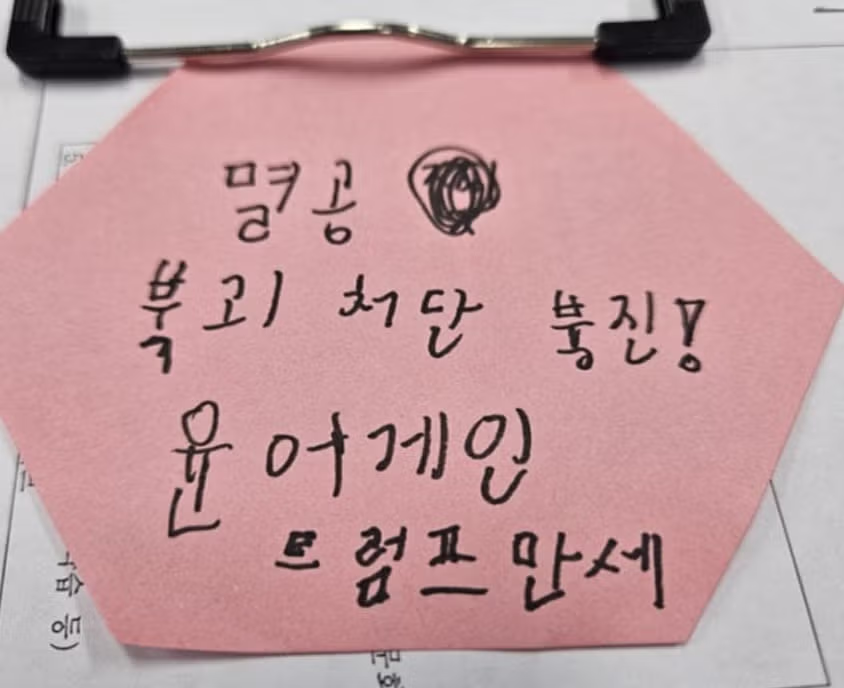 멸공
북괴 척단 붕진!
윤 어게인
트럼프 만세